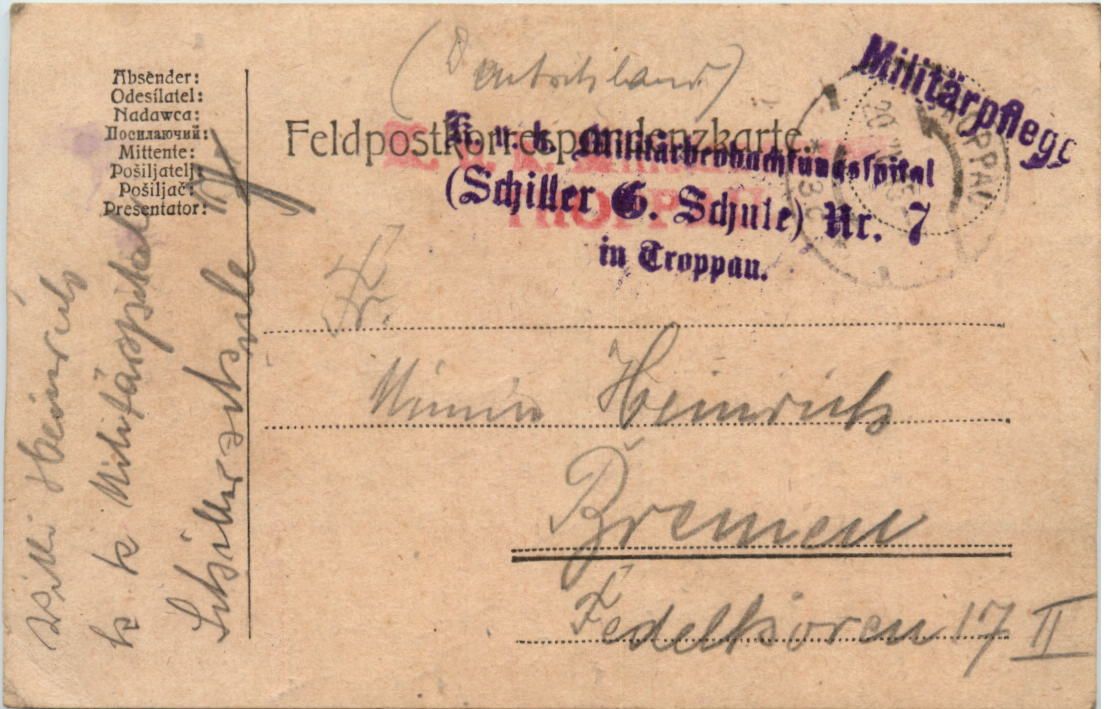 (Deutschland)
Militärpflege
Absender:
Odesílatel:
Nadawca:
Посилаючий:
Mittente:
Pošiljatelj:
Pošiljač:
Presentator:
Feldpostkorrespondenzkarte.
K. u. k.
TROPPAU
K. u. k. Militärbeobachtungsspital
(Schiller G. Schule) Nr. 7
in Troppau.
TROPPAU
Fr.
Heinrich
Bremen
Fedelhören 17 II
Willi Heinrich
k k Militärspital
Schillerschule